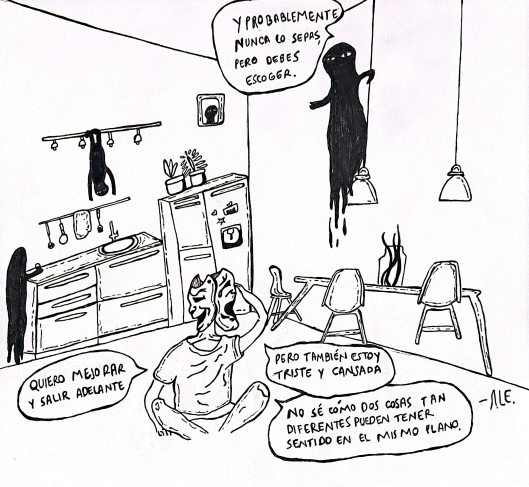 Y PROBABLEMENTE
NUNCA LO SEPAS,
PERO DEBES
ESCOGER.
QUIERO MEJORAR
Y SALIR ADELANTE
PERO TAMBIÉN ESTOY
TRISTE Y CANSADA
NO SÉ CÓMO DOS COSAS TAN
DIFERENTES PUEDEN TENER
SENTIDO EN EL MISMO PLANO.
-ALE.